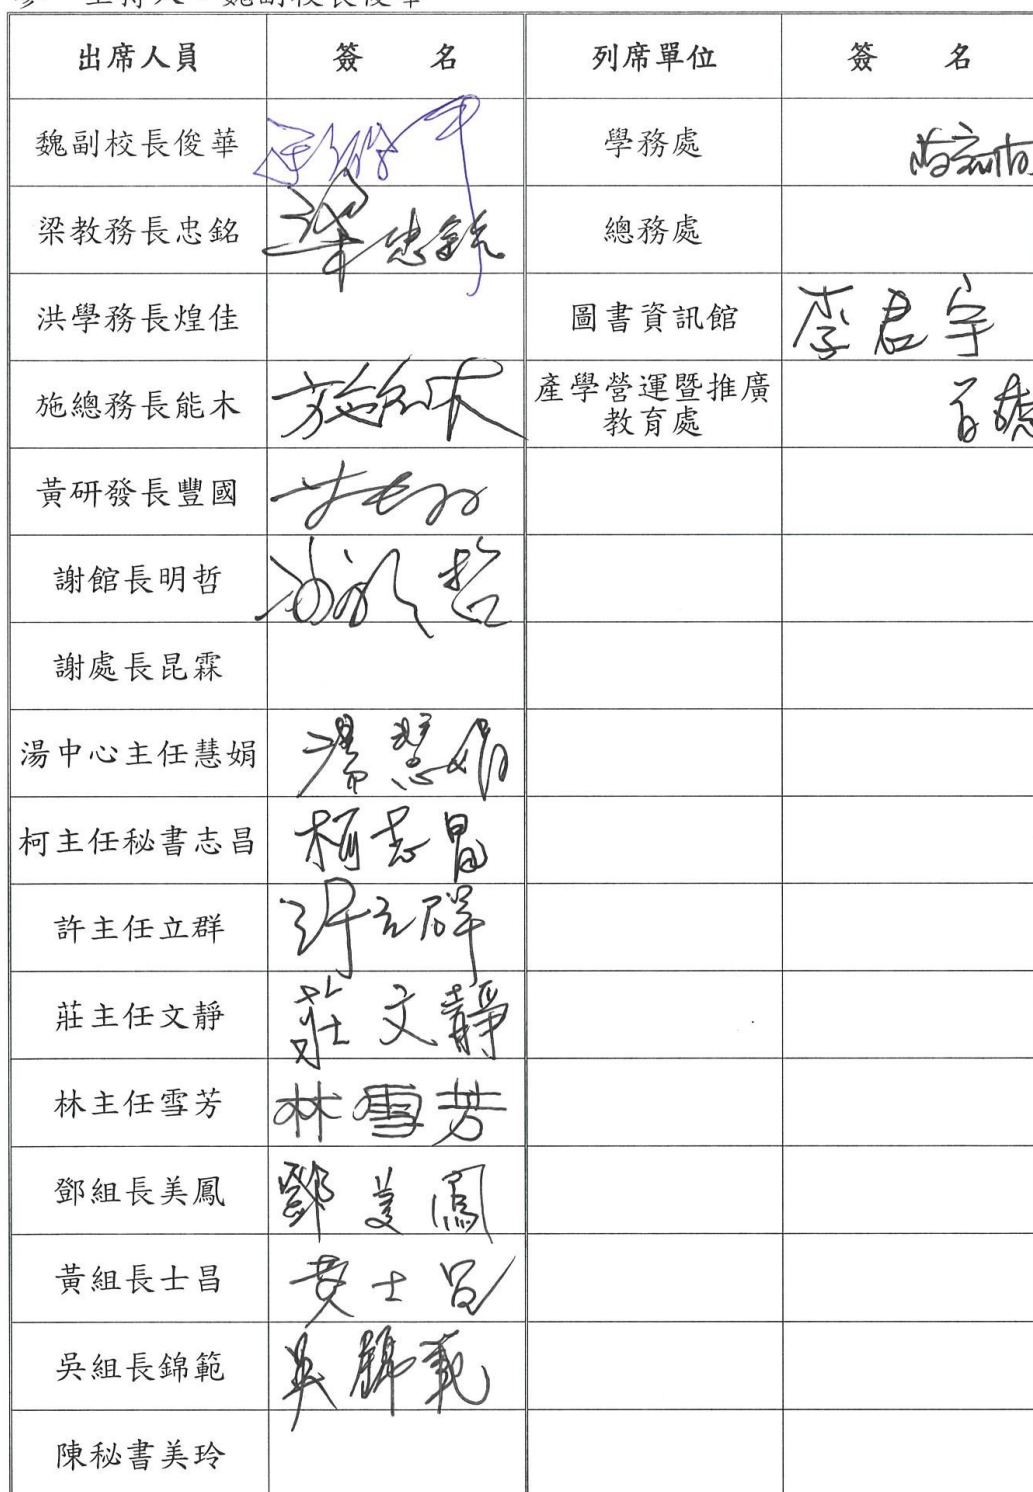 主持人：魏副校長俊華
出席人員 簽 名 列席單位 簽 名
魏副校長俊華 學務處
梁教務長忠銘 梁忠銘 總務處
洪學務長煌佳 圖書資訊館 李君宇
施總務長能木 施能木 產學營運暨推廣
教育處
黃研發長豐國
謝館長明哲 謝明哲
謝處長昆霖
湯中心主任慧娟 湯慧娟
柯主任秘書志昌 柯志昌
許主任立群 許立群
莊主任文靜 莊文靜
林主任雪芳 林雪芳
鄧組長美鳳 鄧美鳳
黃組長士昌 黃士昌
吳組長錦範 吳錦範
陳秘書美玲